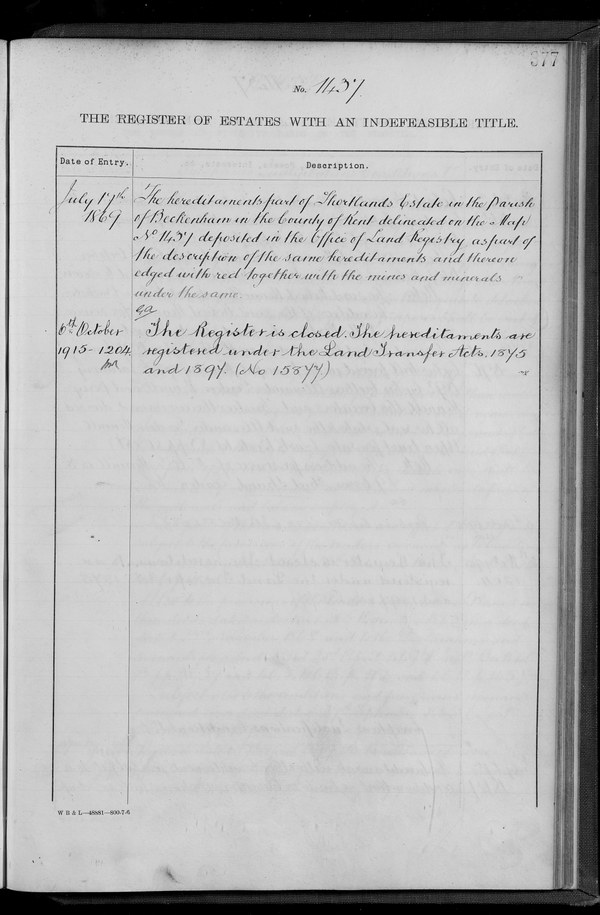 377
No. 1437
THE REGISTER OF ESTATES WITH AN INDEFEASIBLE TITLE.
Date of Entry.
Description.
July 17th
1869
The hereditaments part of Shortlands Estate in the Parish
of Beckenham in the County of Kent delineated on the Map
No 1437 deposited in the Office of Land Registry as part of
the description of the same hereditaments and thereon
edged with red together with the mines and minerals
under the same.
6th October
1915 - 1204
The Register is closed. The hereditaments are
registered under the Land Transfer Acts. 1875
and 1897. (No 15877)
W B & L—48881—800-7-6